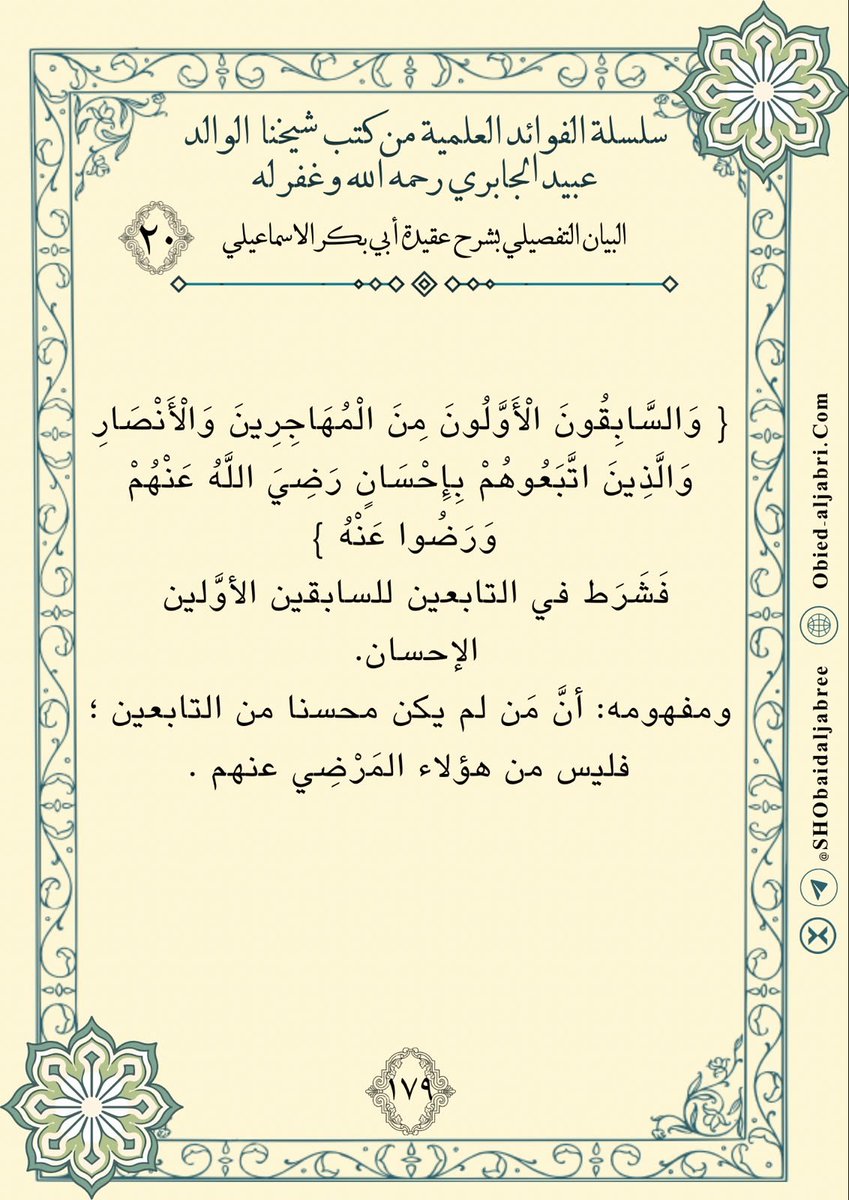 سلسلة الفوائد العلمية من كتب شيخنا الوالد
عبيد الجابري رحمه الله وغفر له
البيان التفصيلي بشرح عقيدة أبي بكر الاسماعيلي
٢٠
{ وَالسَّابِقُونَ الْأَوَّلُونَ مِنَ الْمُهَاجِرِينَ وَالْأَنْصَارِ
وَالَّذِينَ اتَّبَعُوهُمْ بِإِحْسَانٍ رَضِيَ اللَّهُ عَنْهُمْ
وَرَضُوا عَنْهُ }
فَشَرَط في التابعين للسابقين الأوَّلين
الإحسان.
ومفهومه: أنَّ مَن لم يكن محسنا من التابعين ؛
فليس من هؤلاء المَرْضِي عنهم .
١٧٩
Obied-aljabri.Com
@SHObaidaljabree